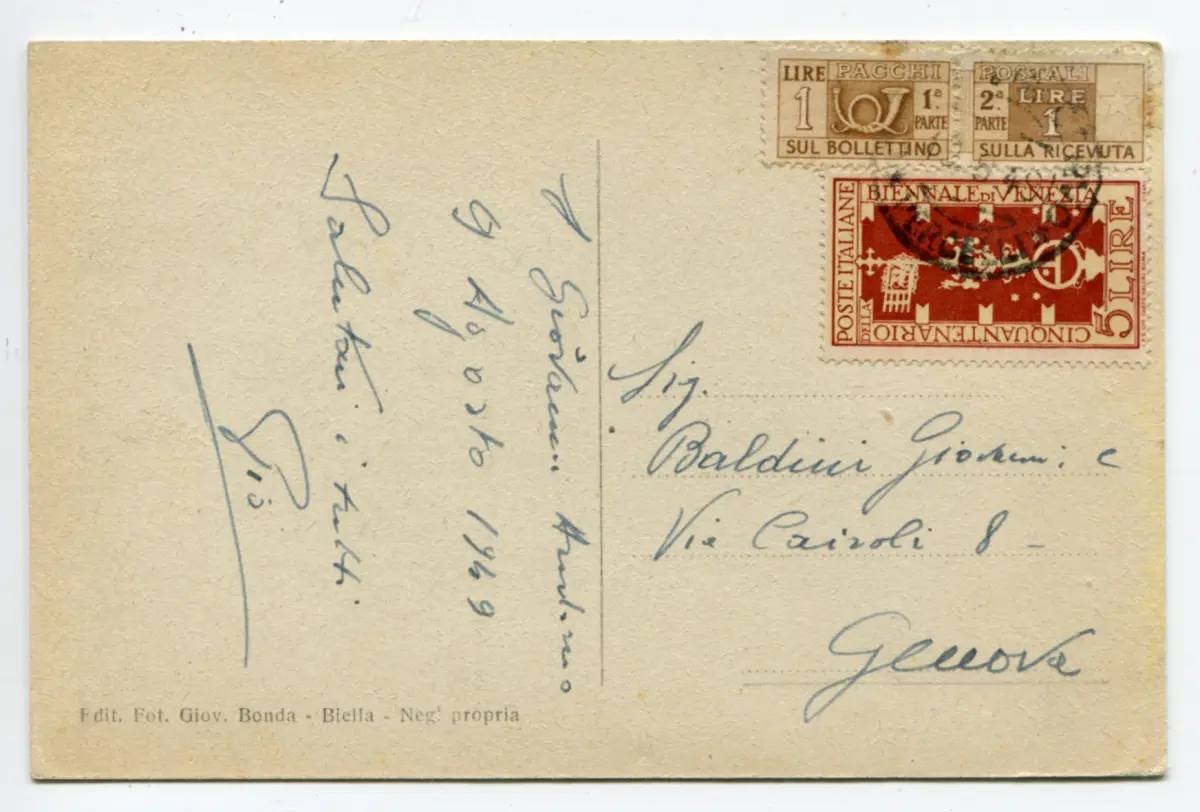 LIRE PACCHI
1
1ª
PARTE
SUL BOLLETTINO
POSTALI
2ª LIRE
PARTE 1
SULLA RICEVUTA
POSTE ITALIANE
BIENNALE DI VENEZIA
DELLA
CINQUANTENARIO
5 LIRE
S Giovanni
9 Agosto 1949
Saluti a tutti
Piò
Sig.
Baldini Giovanni e
Via Cairoli 8 -
Genova
Edit. Fot. Giov. Bonda - Biella - Negª propria